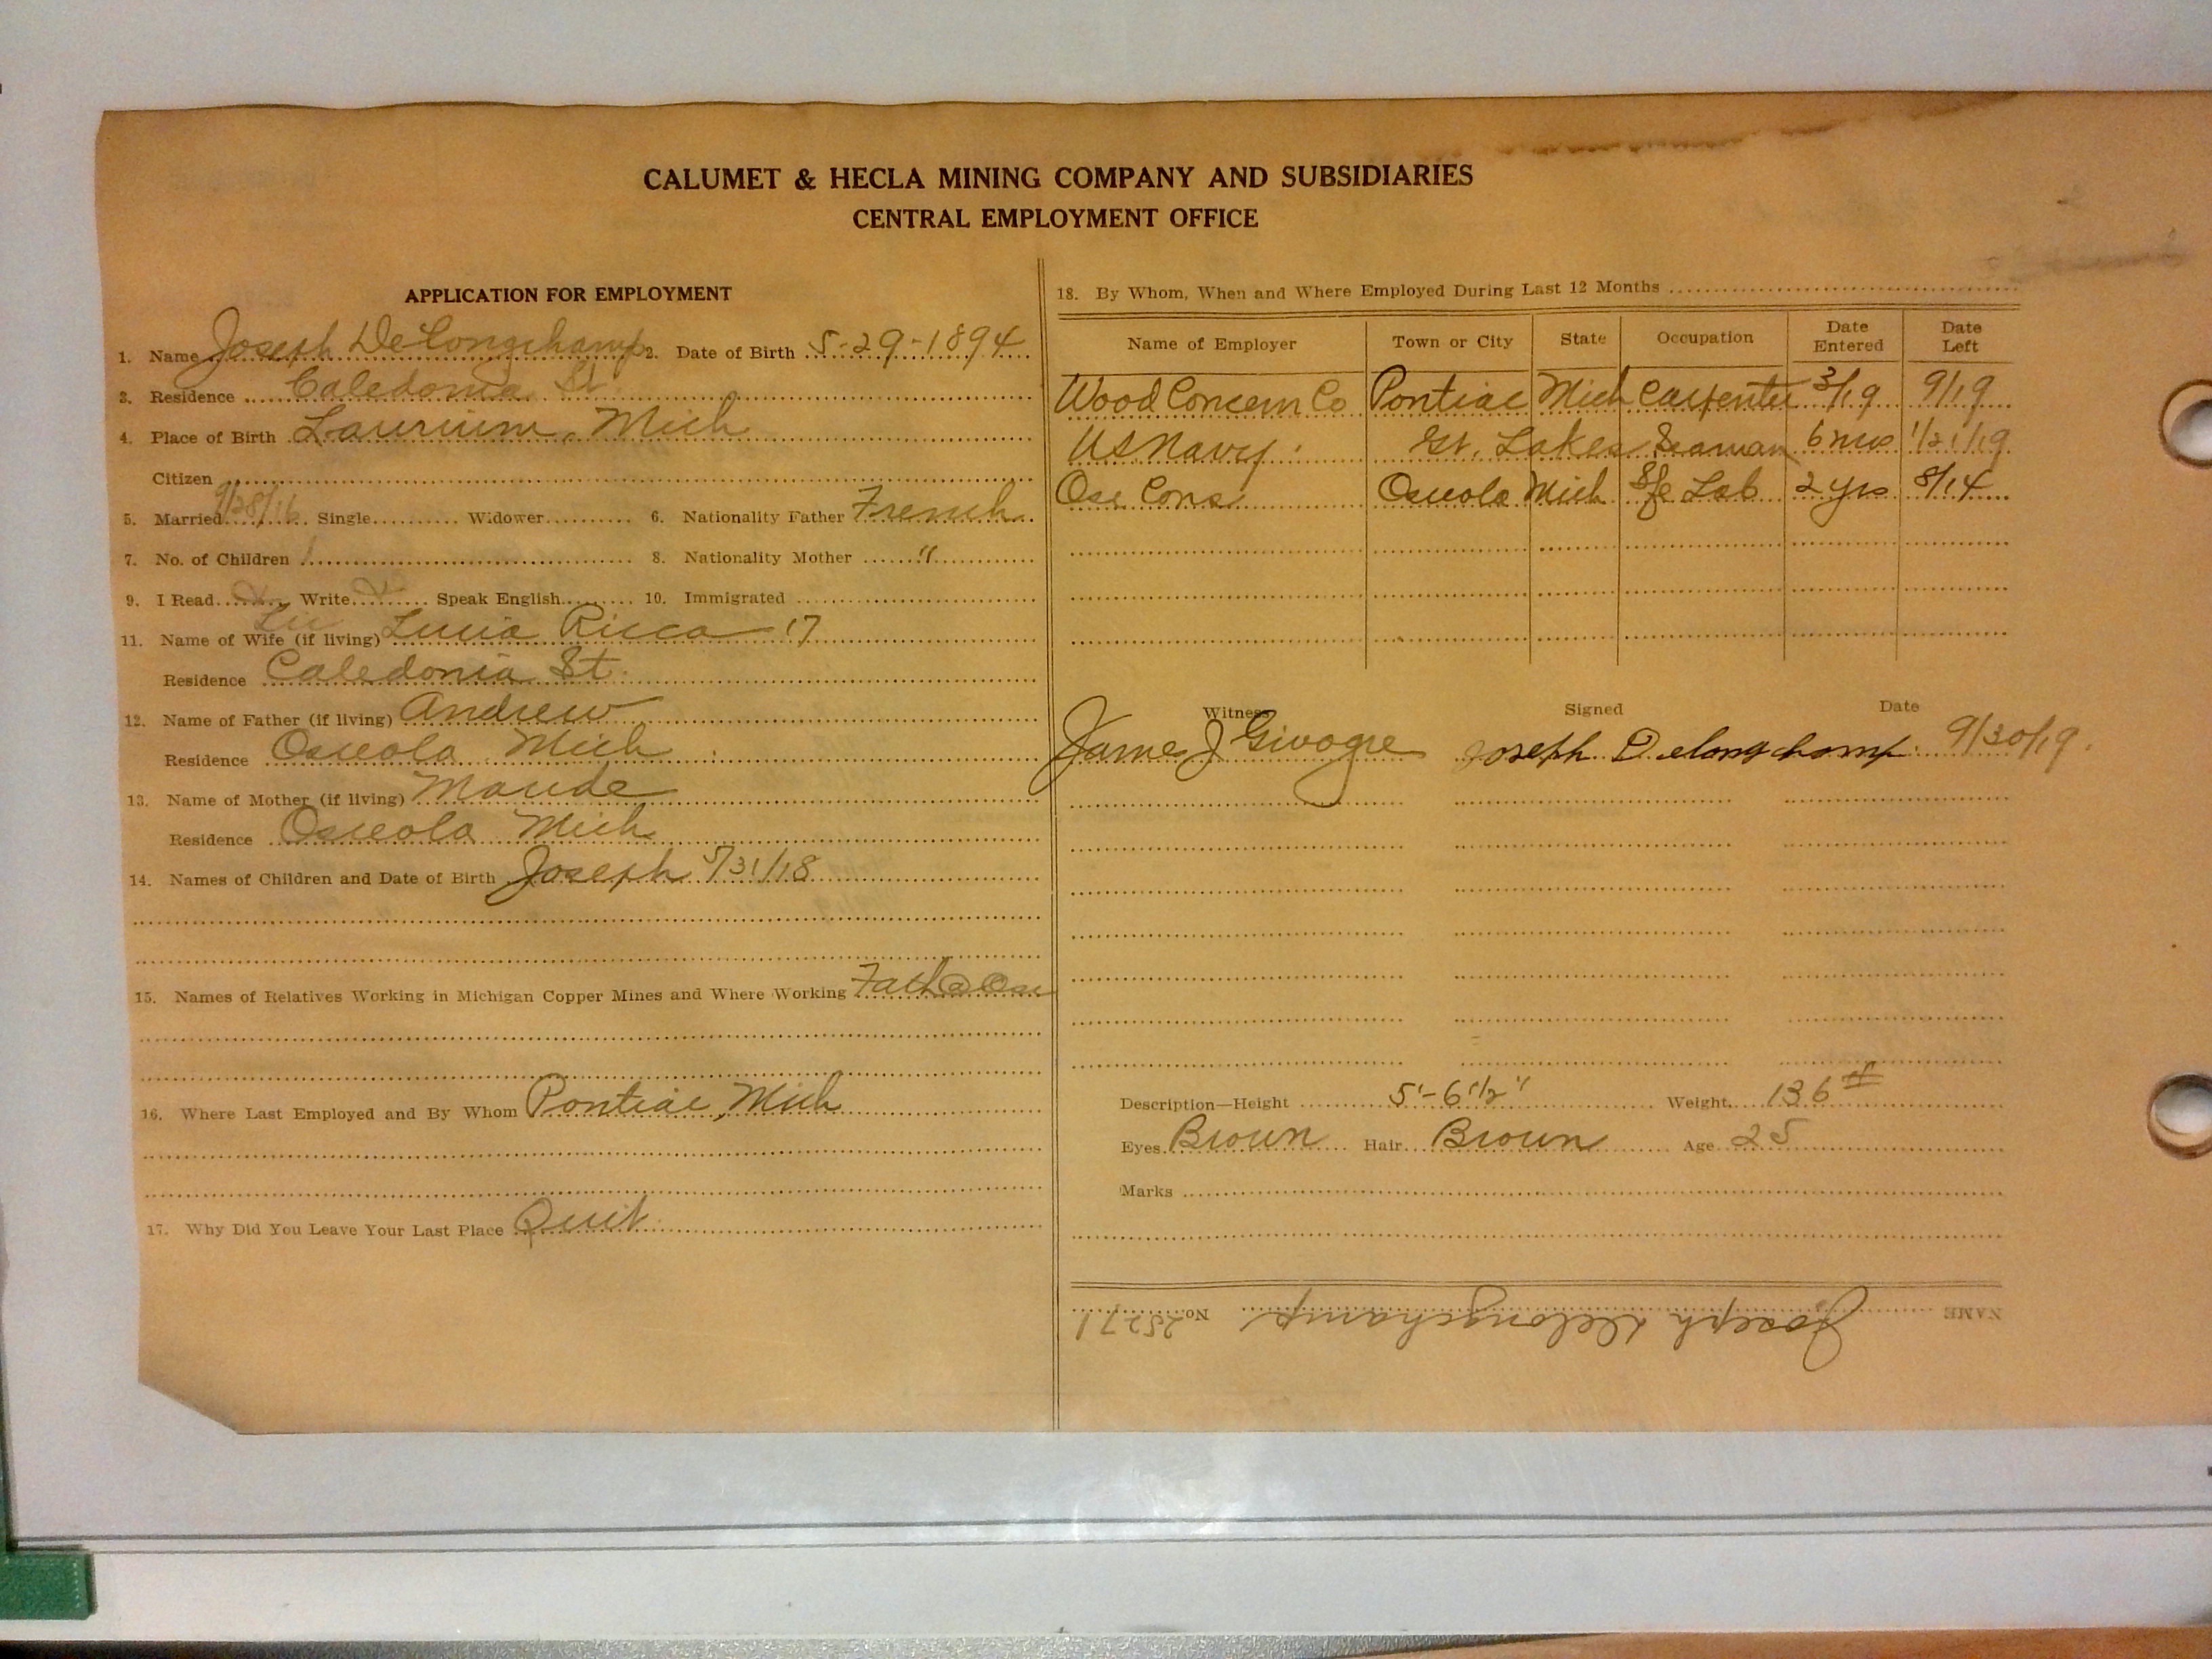 CALUMET & HECLA MINING COMPANY AND SUBSIDIARIES
CENTRAL EMPLOYMENT OFFICE
APPLICATION FOR EMPLOYMENT
1. Name Joseph DeLongchamp 2. Date of Birth 5-29-1894
3. Residence Caledonia St.
4. Place of Birth Laurium, Mich
Citizen
5. Married 9/28/16 Single Widower 6. Nationality Father French
7. No. of Children 1 8. Nationality Mother "
9. I Read X Write X Speak English 10. Immigrated
11. Name of Wife (if living) Lucia Ricca 17
Residence Caledonia St.
12. Name of Father (if living) Andrew
Residence Osceola Mich
13. Name of Mother (if living) Maude
Residence Osceola Mich
14. Names of Children and Date of Birth Joseph 5/31/18
15. Names of Relatives Working in Michigan Copper Mines and Where Working Fath @ Osc
16. Where Last Employed and By Whom Pontiac, Mich
17. Why Did You Leave Your Last Place Quit
18. By Whom, When and Where Employed During Last 12 Months
Name of Employer Town or City State Occupation Date Entered Date Left
Wood Concern Co Pontiac Mich Carpenter 3/19 9/19
US Navy Gt. Lakes Seaman 6 mos 1/21/19
Osc Cons Osceola Mich Sfe Lab 2 yrs 8/14
Witness Signed Date
James J Joseph Delongchamp 9/30/19.
Description—Height 5'-6 1/2" Weight 136 #
Eyes Brown Hair Brown Age 25
Marks
NAME Joseph Delongchamp No. 25271